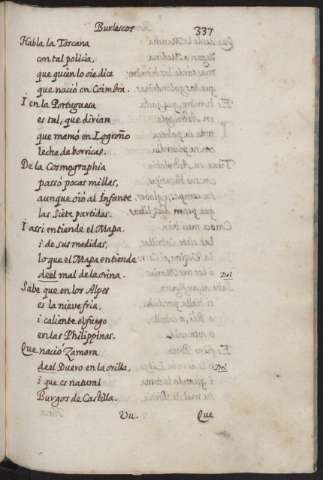 Burlescos
337
Habla la Toscana
con tal policia,
que quien lo oie dice
que nació en Coimbra.
I en la Portuguesa
es tal, que dirian
que mamó en Logroño
leche de borricas.
De la Cosmographia
passó pocas millas,
aunque oió al Infante
las Siete partidas.
I assi entiende el Mapa
i de sus medidas,
lo que el Mapa entiende
deel mal de la orina.
Del
Sabe que en los Alpes
es la nieve fria,
i caliente el fuego
en las Philippinas.
Que nació Zamora
deel Duero en la orilla,
Del
i que es natural
Burgos de Castilla.
Vu.
Que